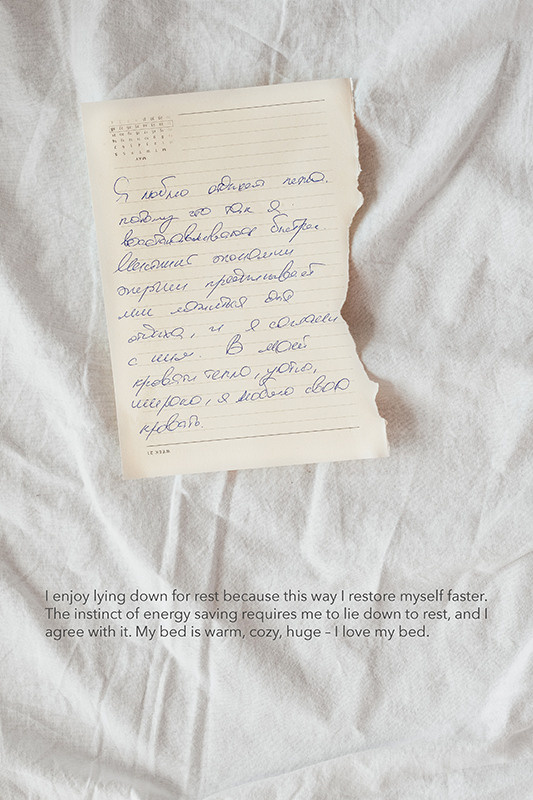 Я люблю отдыхать лежа,
потому что так я
восстанавливаюсь быстрее.
Инстинкт экономии
энергии предписывает
мне ложиться для
отдыха, и я согласен
с ним. В моей
кровати тепло, уютно,
широко, я люблю свою
кровать.
I enjoy lying down for rest because this way I restore myself faster.
The instinct of energy saving requires me to lie down to rest, and I
agree with it. My bed is warm, cozy, huge – I love my bed.